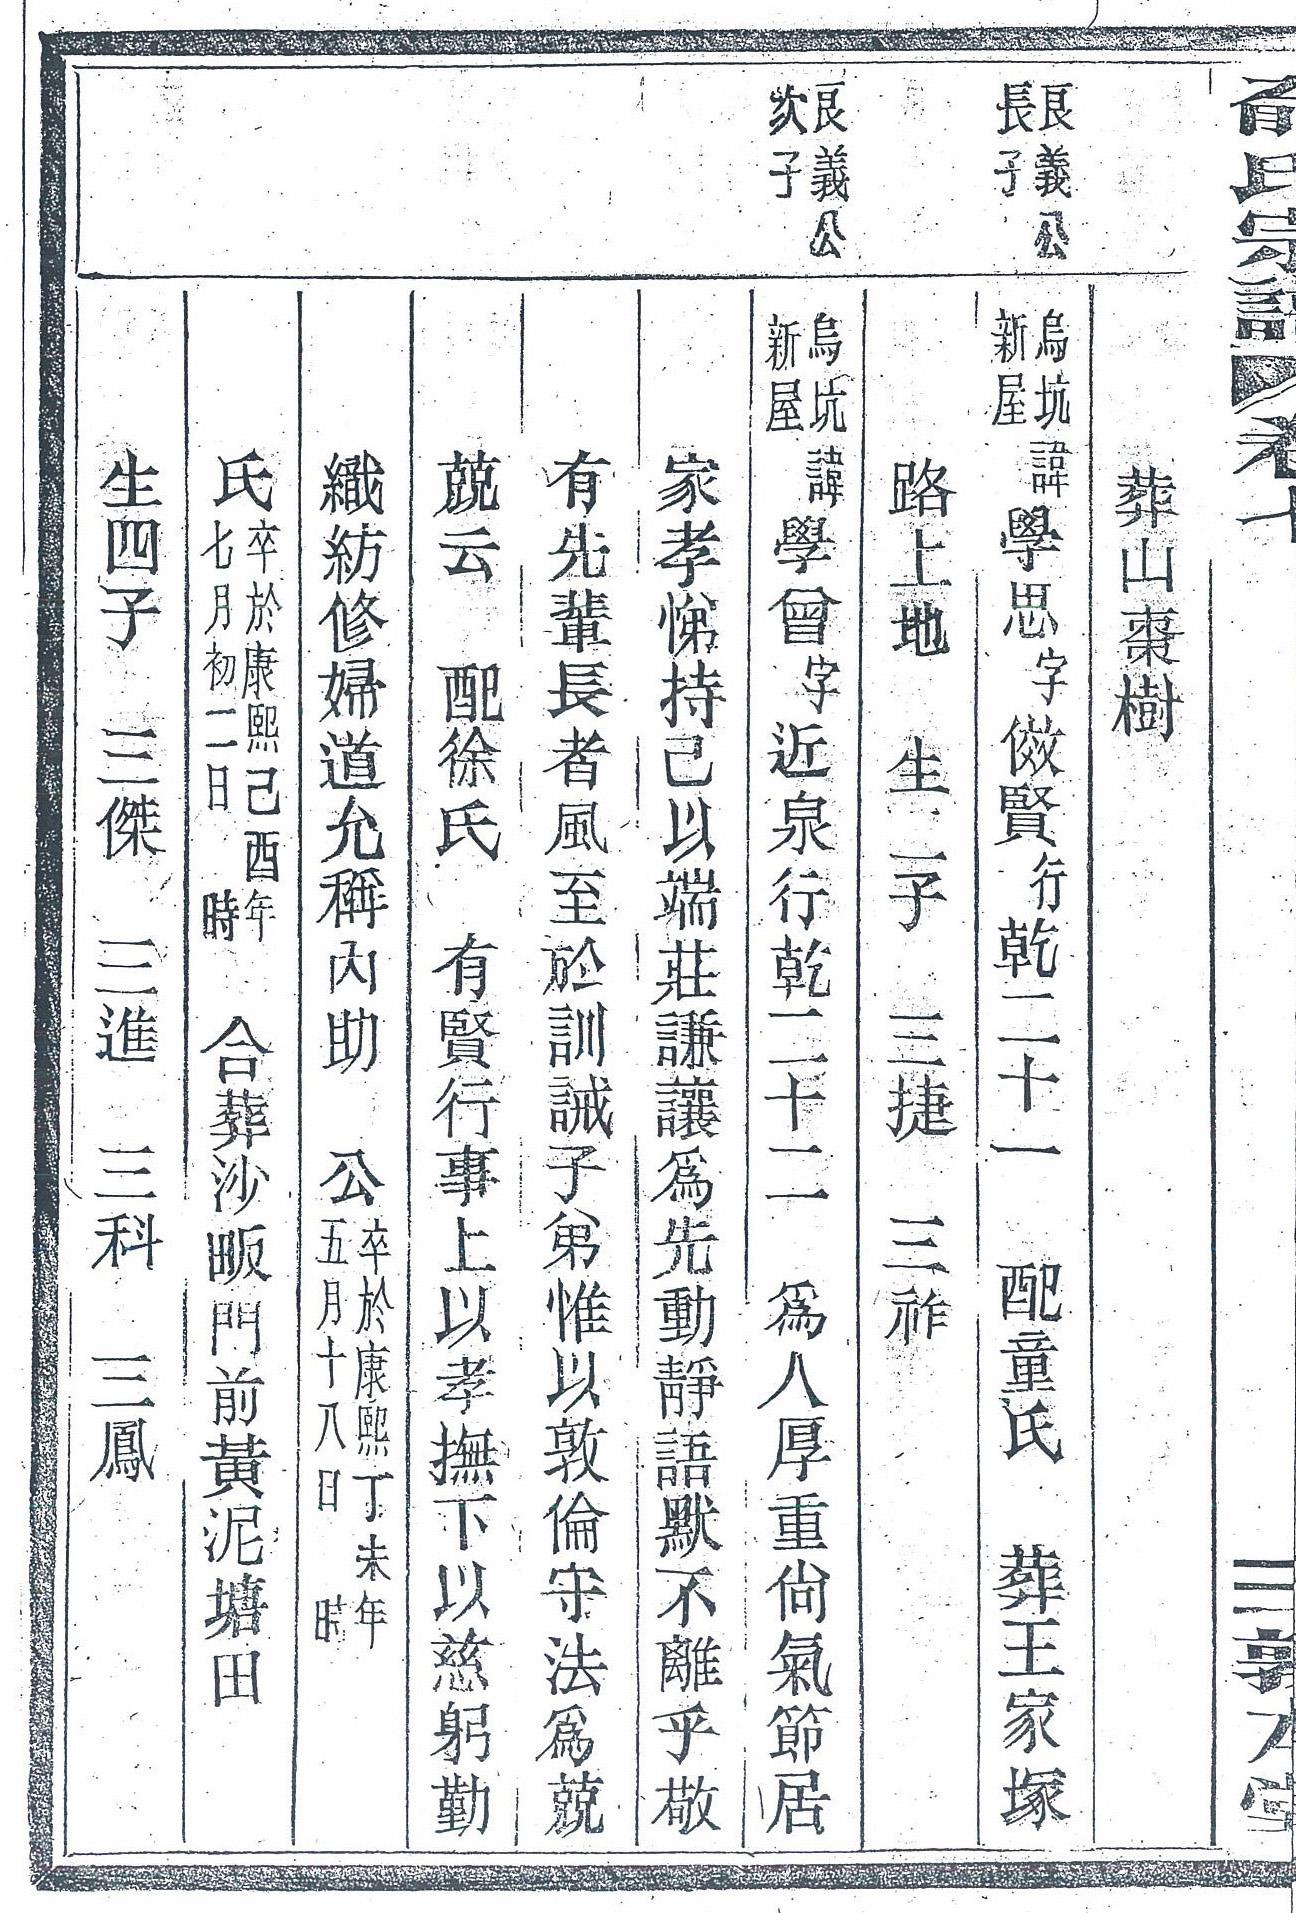 氏宗譜 卷
三 敦本堂
葬山棗樹
艮義公
長子
烏坑
新屋
諱學思字倣賢行乾二十一 配童氏 葬王家塚
路上地 生二子 三捷 三祚
艮義公
次子
烏坑
新屋
諱學曾字近泉行乾二十二 爲人厚重尙氣節居
家孝悌持己以端莊謙讓爲先動靜語默不離乎敬
有先輩長者風至於訓誡子弟惟以敦倫守法爲兢
兢云 配徐氏 有賢行事上以孝撫下以慈躬勤
織紡修婦道允稱內助 公卒於康熙丁未年
五月十八日 時
氏卒於康熙己酉年
七月初二日 時 合葬沙畈門前黃泥塘田
生四子 三傑 三進 三科 三鳳